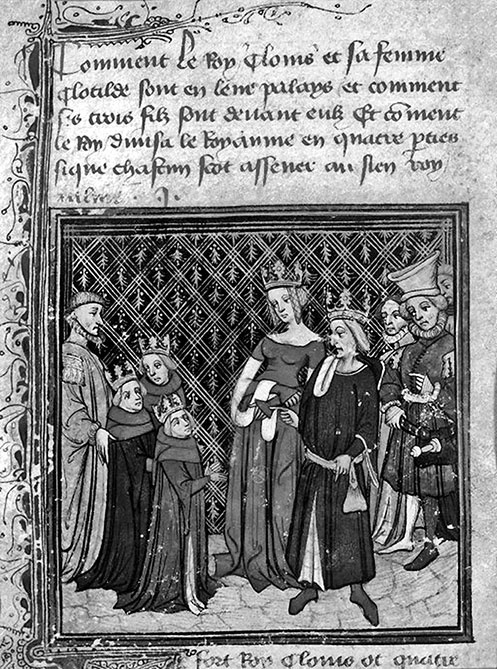 Comment Le Roy Clovis et sa femme
Clotilde sont en leur palays et comment
ses trois filz sont devant eulz Et coment
le Roy divisa le Royaume en quatre pties
sique chascun scot assener au sien roy
aulme
fort Roy Clovis ot quatre